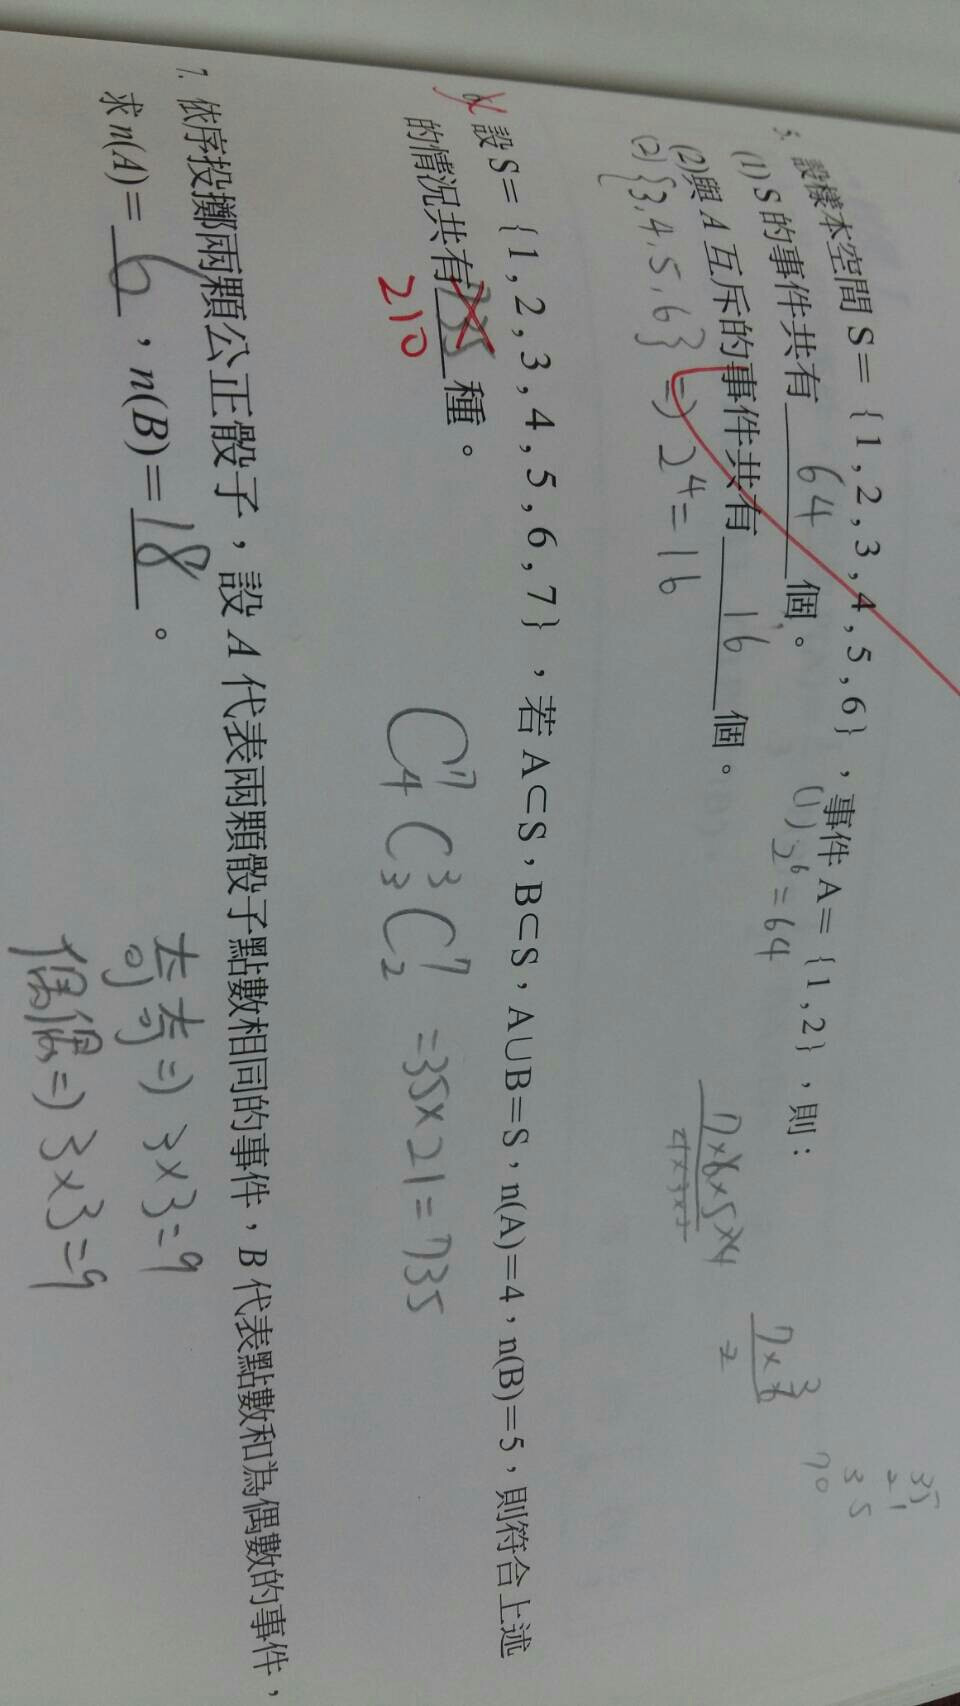 5. 設樣本空間 S＝{1,2,3,4,5,6}，事件 A＝{1,2}，則：
(1) S 的事件共有 64 個。
(1) 2⁶=64
(2)與 A 互斥的事件共有 16 個。
(2){3,4,5,6} => 2⁴=16
7×6×5×4
4×3×2
7×6 3
2
35
21
35
70
6. 設 S＝{1,2,3,4,5,6,7}，若 A⊂S，B⊂S，A∪B＝S，n(A)＝4，n(B)＝5，則符合上述
的情況共有 735 種。
210
C⁷₄ C³₃ C⁷₂ =35×21=735
7. 依序投擲兩顆公正骰子，設 A 代表兩顆骰子點數相同的事件，B 代表點數和為偶數的事件，
求 n(A)＝ 6 ，n(B)＝ 18 。
奇奇=>3×3=9
偶偶=>3×3=9